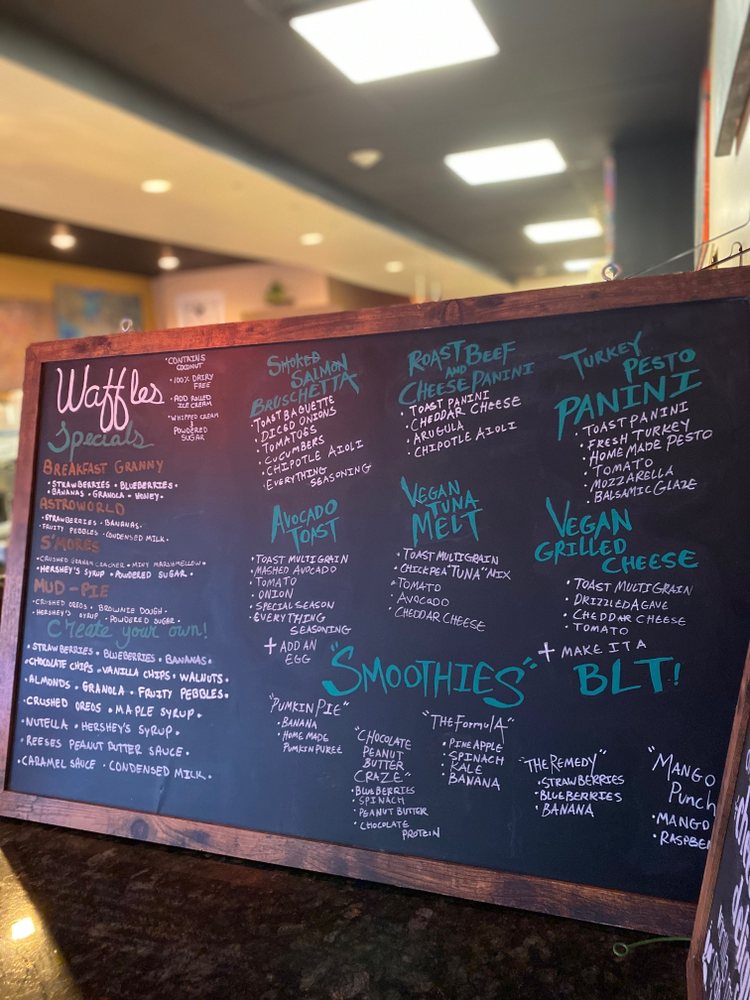 Waffles
*CONTAINS
COCONUT
*100% DAIRY
FREE
* ADD ROLLED
ICE CREAM
*WHIPPED CREAM &
POWDERED
SUGAR
Specials
BREAKFAST GRANNY
• STRAWBERRIES • BLUEBERRIES •
BANANAS • GRANOLA • HONEY •
ASTROWORLD
• STRAWBERRIES • BANANAS •
FRUITY PEBBLES • CONDENSED MILK •
S'MORES
• CRUSHED GRAHAM CRACKER • MINY MARSHMELLOW •
HERSHEY'S SYRUP • POWDERED SUGAR •
MUD-PIE
• CRUSHED OREOS • BROWNIE DOUGH •
• HERSHEY'S SYRUP • POWDERED SUGAR •
Create your own!
• STRAWBERRIES • BLUEBERRIES • BANANAS •
• CHOCOLATE CHIPS • VANILLA CHIPS • WALNUTS •
• ALMONDS • GRANOLA • FRUITY PEBBLES •
• CRUSHED OREOS • MAPLE SYRUP •
• NUTELLA • HERSHEY'S SYRUP •
• REESES PEANUT BUTTER SAUCE •
• CARAMEL SAUCE • CONDENSED MILK •
SMOKED
SALMON
BRUSCHETTA
• TOAST BAGUETTE
• DICED ONIONS
• TOMATOES
• CUCUMBERS
• CHIPOTLE AIOLI
• EVERYTHING
SEASONING
ROAST BEEF
AND
CHEESE PANINI
• TOAST PANINI
• CHEDDAR CHEESE
• ARUGULA
• CHIPOTLE AIOLI
TURKEY
PESTO
PANINI
• TOAST PANINI
• FRESH TURKEY
• HOME MADE PESTO
• TOMATO
• MOZZARELLA
• BALSAMIC GLAZE
AVOCADO
TOAST
• TOAST MULTIGRAIN
• MASHED AVOCADO
• TOMATO
• ONION
• SPECIAL SEASON
• EVERYTHING
SEASONING
+ ADD AN
EGG
VEGAN
TUNA
MELT
• TOAST MULTIGRAIN
• CHICKPEA "TUNA" MIX
• TOMATO
• AVOCADO
• CHEDDAR CHEESE
VEGAN
GRILLED
CHEESE
• TOAST MULTIGRAIN
• DRIZZLED AGAVE
• CHEDDAR CHEESE
• TOMATO
+ MAKE IT A
BLT!
"SMOOTHIES"
"PUMKIN PIE"
• BANANA
• HOME MADE
PUMKIN PUREE
"CHOCOLATE
PEANUT
BUTTER
CRAZE"
• BLUEBERRIES
• SPINACH
• PEANUT BUTTER
• CHOCOLATE
PROTEIN
"THE FORMULA"
• PINEAPPLE
• SPINACH
• KALE
• BANANA
"THE REMEDY"
• STRAWBERRIES
• BLUEBERRIES
• BANANA
"MANGO
PUNCH
• MANGO
• RASPBE